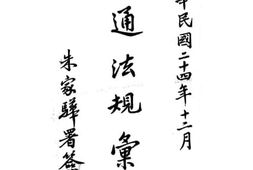 華民國二十四年十二月
通法規彙
朱家驊署簽